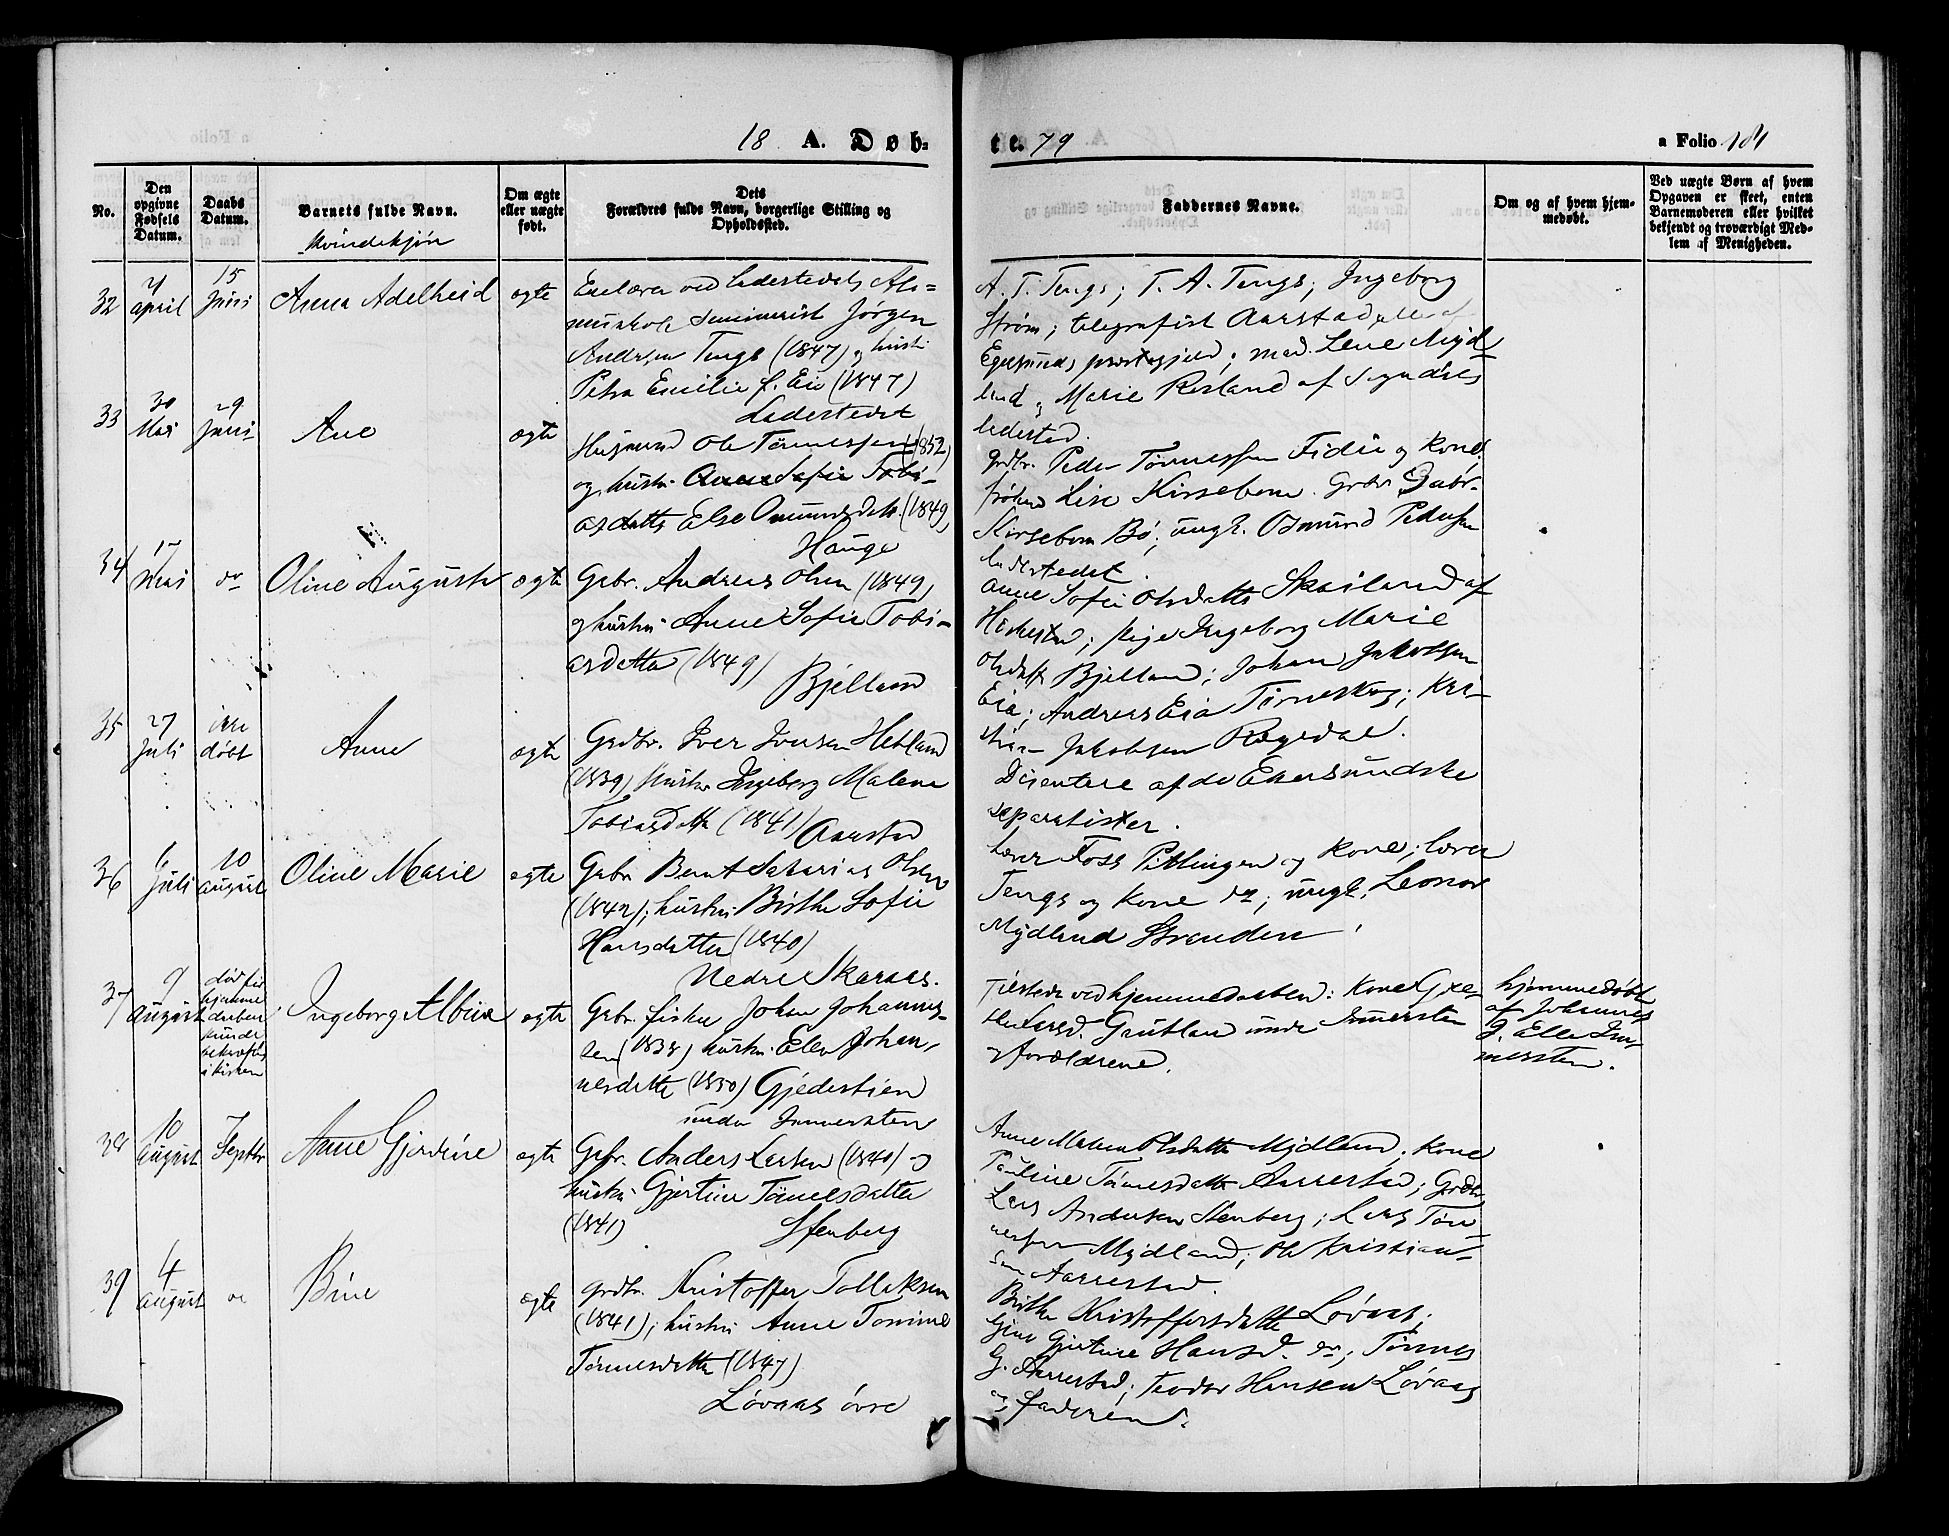 18 A. Døb-
te. 79
a Folio 181
No.
Den opgivne Fødsels Datum.
Daabs Datum.
Barnets fulde Navn.
Kvindekjøn
Om ægte eller uægte født.
Dets Forældres fulde Navn, borgerlige Stilling og Opholdssted.
Faddernes Navne.
Om og af hvem hjemmedøbt.
Ved uægte Børn af hvem Opgaven er skeet, enten Barnemoderen eller hvilket bekjendt og troværdigt Medlem af Menigheden.
32
april
15 Juni
Anna Adelheid
ægte
ved Ladestedets Al-
mueskole Seminarist Jørgen
Andersen Tengs (1847) og hustr.
Petra Emilie f. Eie (1847)
Ladestedet
A. T. Tengs; T. A. Tengs; Ingeborg
Strøm; telegrafist Aarstad alle af
Egersunds præstegjeld; mad. Lene Myd-
land og Marie Rosland af Sogndals
ladested.
33
30 Mai
29 Juni
Ane
ægte
Husmand Ole Tønnessen (1852)
og hustru Anne Sofie Tobi-
asdatter Else Omundsdatt. (1849)
Hauge
grdbr. Peder Tønnessen Fidie og Kone
frøken Lise Kirsebom. Grdbr Gabr.
Kirsebom Bø; ungk. Osmund Pedersen
ladestedet.
34
17 Mai
do
Oline Auguste
ægte
Grbr. Andreas Olsen (1849)
og hustru Anne Sofie Tobi-
asdatter (1849)
Bjelland
Anne Sofie Olsdatter Skailand af
Heskestad; pige Ingeborg Marie
Olsdatt Bjelland; Johan Jakobsen
Eia; Andreas Eia Tirneskog; Kri-
stian Jakobsen Røgedal.
35
27 Juli
ikke døbt
Anne
ægte
Grdbr. Iver Iversen Hetland
(1839) Hustr Ingeborg Malene
Tobiasdatter (1841)
Aarstad
Disentere af de Ekersundske
separatister.
36
6 Juli
10 august
Oline Marie
ægte
Grbr Bernt Sakarias Olsen
(1842); hustru Birthe Sofie
Hansdatter (1840)
Nedre Skaraas.
Lærer Foss Pitlingen og Kone; lærer
Tengs og Kone do; ungk. Leonor
Mydland Stranden.
37
9 august
død før
hjemme
daaben
kunde
bekræftes
i kirken
Ingeborg Albine
ægte
Grbr. fisker Johan Johannes-
sen (1838) hustru Elen Johan-
nesdatter (1850) Gjedestien
under Immersten
Tilstede ved hjemmedaaben: Kone Gre-
the Larsd. Grutlan under Immersten
og forældrene.
hjemmedøbt
af Johannes
J. Elle Im-
mersten.
38
10 august
7 Septbr
Anne Gjerdine
ægte
Grbr. Anders Larsen (1840) og
hustru Gjertine Tønnesdatter
(1841)
Stenberg
Anne Malene Olsdatter Mydland; kone
Pauline Tønnesdatter Aarrestad; Grdbr
Lars Andersen Stenberg; Lars Tøn-
nessen Mydland; Ole Kristian-
sen Aarrestad.
39
4 august
do
Bine
ægte
grdbr. Kristoffer Tolleksen
(1841); hustru Anne Tomine
Tønnesdatter (1847).
Løvaas øvre
Birthe Kristoffersdatter Løvaas;
Gjertine Hansd. do; Tønnes
G. Aarrestad; Teodor Hansen Løvaas
og faderen.